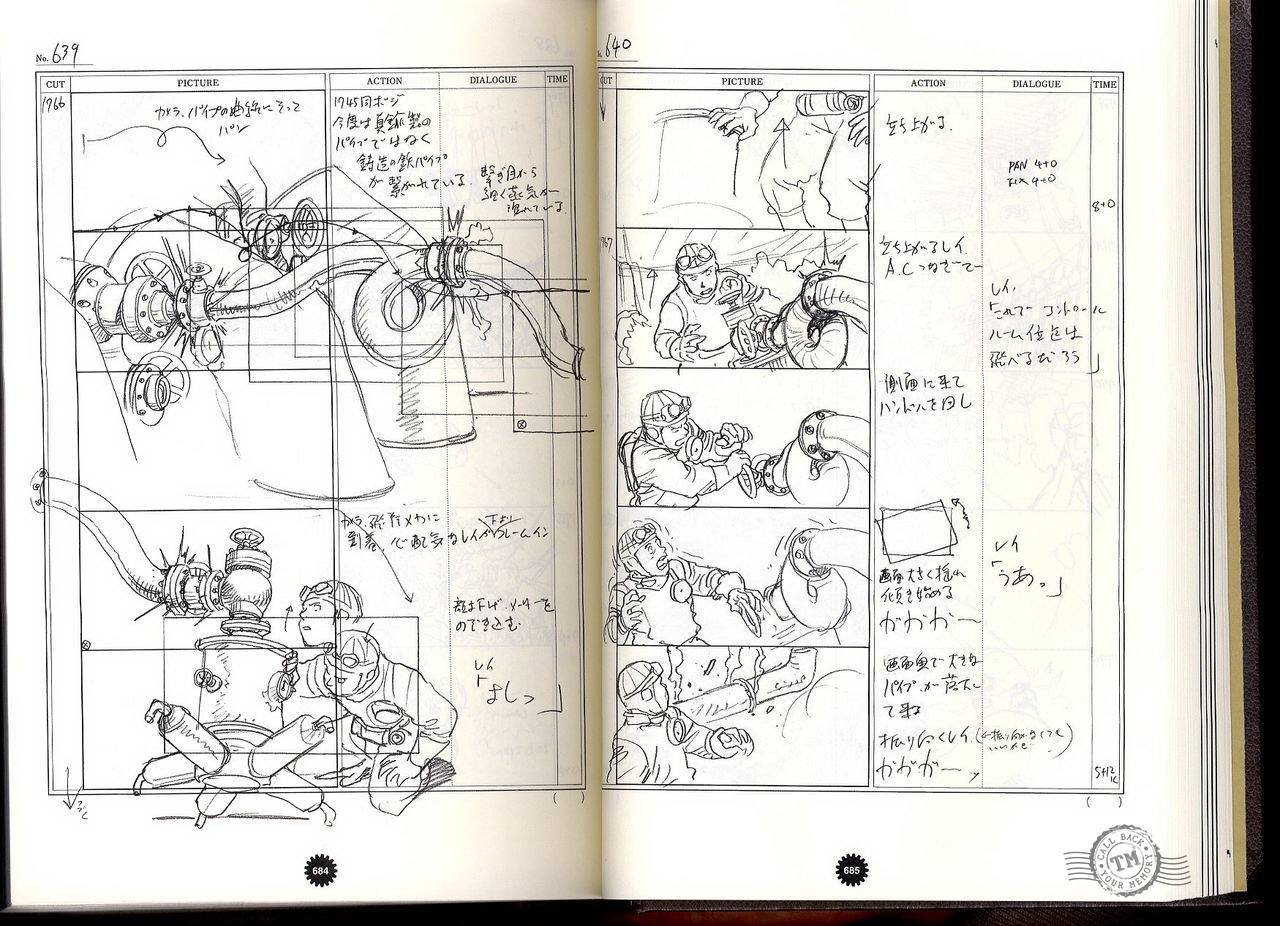 No. 639
CUT PICTURE ACTION DIALOGUE TIME
1766
カメラ、パイプの曲線にそって
パン
1745同ポジ
今度は真鍮製の
パイプではなく
鋳造の鉄パイプ
が繋がれている
繋ぎ目から
細く蒸気が
洩れている
カメラ、飛行メカに
到着、心配気なレイが下よりフレームイン
メーターを
のぞき込む
レイ
「よしっ」
684
640
CUT PICTURE ACTION DIALOGUE TIME
立ち上がる
PAN 4+0
FIX 4+0
8+0
1767
立ち上がるレイ
A.C つなぎで
レイ
「これで コントロール
ルーム位は
飛べるだろう」
側面に来て
ハンドルを回し
画面大きく揺れ
傾き始める
ガガガー
レイ
「うあっ」
画面奥で大きな
パイプが落下し
て来る
振り向くレイ
ガガガー
5+12
685
CALL BACK
TM
YOUR MEMORY